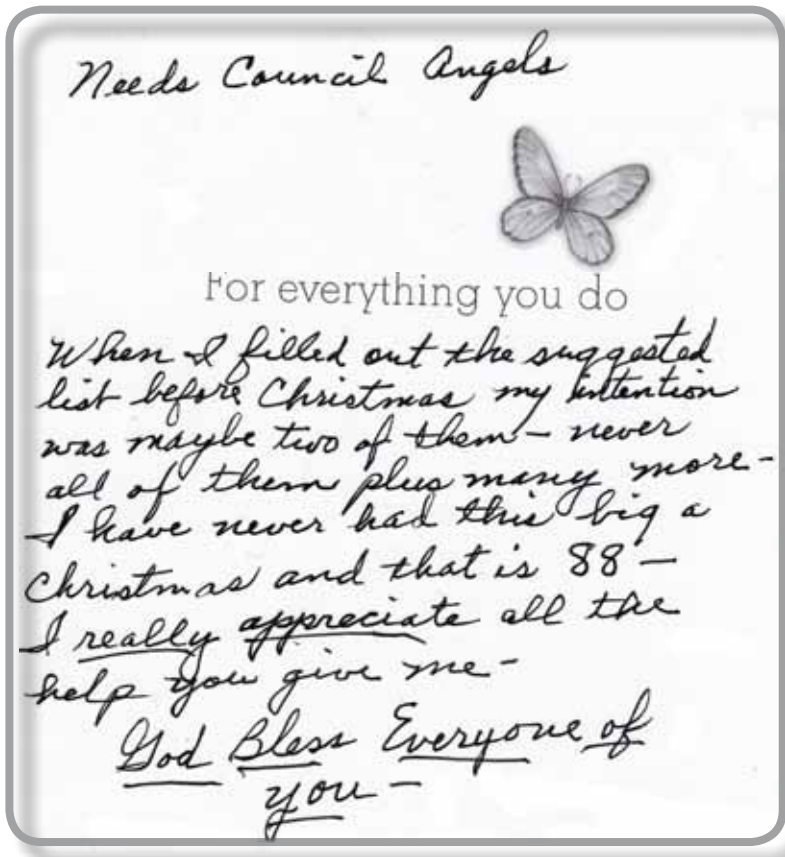 Needs Council Angels
For everything you do
When I filled out the suggested
list before Christmas my intention
was maybe two of them – never
all of them plus many more –
I have never had this big a
Christmas and that is 88 –
I really appreciate all the
help you give me –
God Bless Everyone of
you –